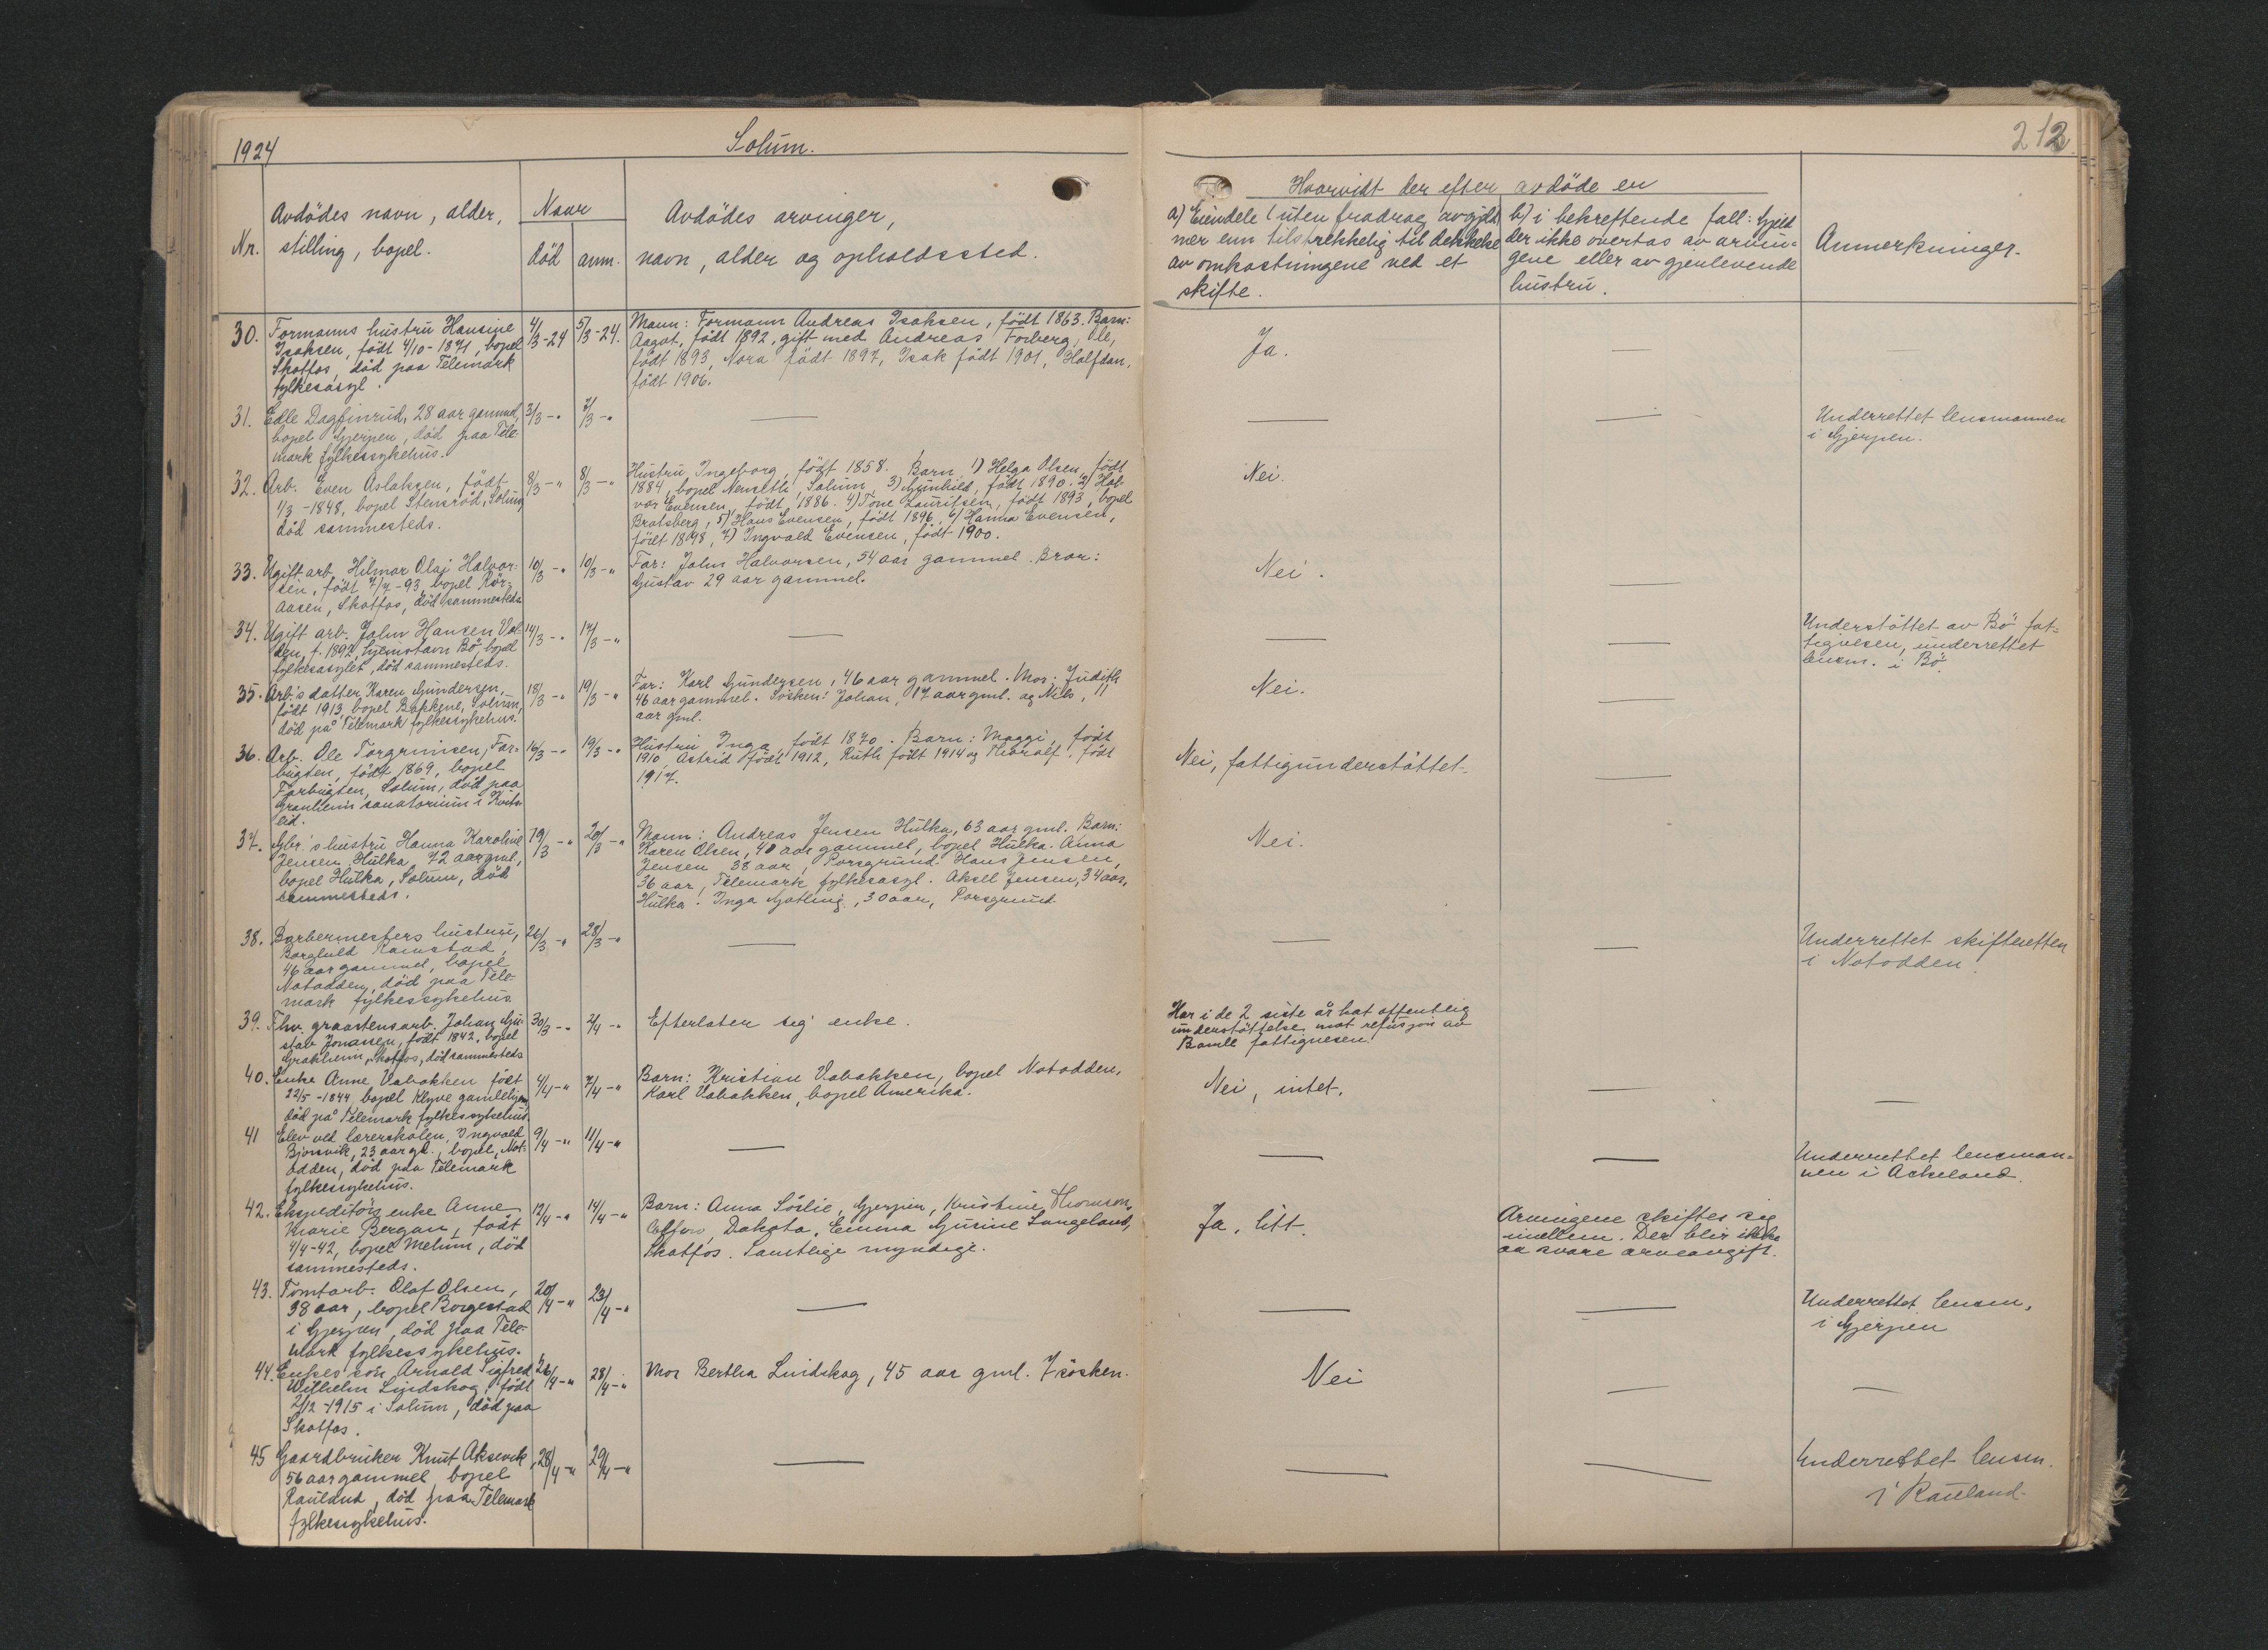 1924
Solum.
212
Nr.
Avdödes navn, alder,
stilling, bopel.
Naar
död
anm.
Avdödes arvinger,
navn, alder og opholdssted.
Hvorvidt der efter avdöde er
a) Eiendele (uten fradrag av gjeld
mer enn tilstrekkelig til dekkelse
av omkostningene ved et
skifte.
b) i bekreftende fall: Gjeld
der ikke overtas av arvin-
gene eller av gjenlevende
hustru.
Anmerkninger.
30. Formanns hustru Hansine
Isaksen, födt 4/10-1871, bopel
Skotfos, död paa Telemark
fylkesasyl.
4/3-24
5/3-24.
Mann: Formann Andreas Isaksen, födt 1863. Barn:
Aagot, födt 1892, gift med Andreas Forberg, Ole,
födt 1893, Nora födt 1897, Isak födt 1901, Halfdan,
födt 1906.
Ja.
31. Edle Dagfinrud, 28 aar gammel,
bopel Gjerpen, död paa Tele-
mark fylkessykehus.
3/3-"
7/3-"
Underrettet lensmannen
i Gjerpen.
32. Arb. Even Aslaksen, födt
1/3-1848, bopel Stensröd, Solum,
död sammesteds.
8/3-"
8/3-"
Hustru Ingeborg, födt 1858. Barn 1) Helga Olsen, födt
1884, bopel Nenseth, Solum, 3) Gunhild, födt 1890. 2) Hal-
vor Evensen, födt 1886. 4) Tone Lauritsen, födt 1893, bopel
Bratsberg, 5) Hans Evensen, födt 1896, 6) Hanna Evensen,
födt 1898, 7) Ingvald Evensen, födt 1900.
Nei.
33. Ugift arb. Hilmar Olaj Halvor-
sen, födt 7/7-93, bopel Rör-
aasen, Skotfos, död sammesteds
10/3-"
10/3-"
Far: John Halvorsen, 54 aar gammel. Bror:
Gustav 29 aar gammel.
Nei.
34. Ugift arb. John Hansen Val-
den, f. 1892, hjemstavn Bö, bopel
fylkesasylet, död sammesteds.
14/3-"
17/3-"
Understöttet av Bö fat-
tigvesen, underrettet
lensm. i Bö.
35. Arb's datter Karen Gundersen,
födt 1913, bopel Bakkene, Solum,
död på Telemark fylkessykehus.
18/3-"
19/3-"
Far: Karl Gundersen, 46 aar gammel. Mor: Judith
46 aar gammel. Sösken: Johan, 17 aar gml. og Nils, 11
aar gml.
Nei.
36. Arb. Ole Torgrimsen, Far-
bugten, födt 1869, bopel
Farbugten, Solum, död paa
Granheim sanatorium i Kvits-
eid.
16/3-"
19/3-"
Hustru Inga födt 1870. Barn: Maggi, födt
1910, Astrid födt 1912, Ruth födt 1914 og Thoralf, födt
1917.
Nei, fattigunderstöttet.
37. Gbr.'s hustru Hanna Karoline
Jensen Hulka, 72 aar gml,
bopel Hulka, Solum, död
sammesteds.
19/3-"
20/3-"
Mann: Andreas Jensen Hulka, 63 aar gml. Barn:
Karen Olsen, 40 aar gammel, bopel Hulka. Anna
Jensen 38 aar, Porsgrund. Hans Jensen,
36 aar, Telemark fylkesasyl. Aksel Jensen, 34 aar,
Hulka. Inga Gotling, 30 aar, Porsgrund
Nei.
38. Barbermesters hustru,
Borghild Ramstad,
46 aar gammel, bopel
Notodden, död paa Tele-
mark fylkessykehus
26/3-"
28/3-"
Underrettet skifteretten
i Notodden.
39. Fhv. graastensarb. Johan Gu-
stav Jonassen, födt 1842, bopel
Granheim, Skotfos, död sammesteds
30/3-"
2/4-"
Efterlater sig enke.
Har i de 2 siste år hat offentlig
understöttelse mot refusjon av
Bamle fattigvesen.
40. Enke Anne Vabakken födt
22/5-1844, bopel Klyve gamlehjem,
död på Telemark fylkessykehus.
4/4-"
7/4-"
Barn: Kristian Vabakken, bopel Notodden,
Karl Vabakken, bopel Amerika.
Nei, intet.
41 Elev ved lærerskolen, Ingvald
Bjorvik, 23 aar gl., bopel, Not-
odden, död paa Telemark
fylkessykehus.
9/4-"
11/4-"
Underrettet lensman-
nen i Askeland.
42. Ekspeditörs enke Anne
Marie Bergan, födt
4/4-42, bopel Melum, död
sammesteds.
12/4-"
14/4-"
Barn: Anna Sörlie, Gjerpen, Kristine Thomson,
Dakota, Emma Gurine Langeland,
Skotfos. Samtlige myndige.
Ja, litt.
Arvingene skiftes sig
imellem. Der blir ikke
aa svare arveavgift.
43. Tomtarb. Olaf Olsen,
38 aar, bopel Borgestad
i Gjerpen, död paa Tele-
mark fylkessykehus.
20/4-"
23/4-"
Underrettet lensm.
i Gjerpen
44. Enkes sön Arnold Sigfred
Wilhelm Lindskog, födt
2/12-1915 i Solum, död paa
Skotfos.
26/4-"
28/4-"
Mor Bertha Lindskog, 45 aar gml. 7 sösken.
Nei
45 Gaardbruker Knut Aksevik,
56 aar gammel, bopel
Rauland, död paa Telemark
fylkessykehus.
28/4-"
29/4-"
Underrettet lensm.
i Rauland.